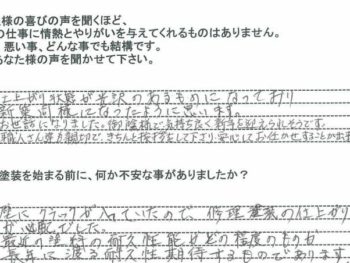 様の喜びの声を聞くほど、
の仕事に情熱とやりがいを与えてくれるものはありません。
悪い事、どんな事でも結構です。
あなた様の声を聞かせて下さい。
仕上がり状態が光沢のあるものになっており
新築同様になったように思います。
お世話になりました。御陰様で気持ち良く新年を迎えられそうです。
職人さん達も親切で、きちんと挨拶をして下さり、安心してお任せすることが出来
塗装を始める前に、何か不安な事がありましたか？
壁にクラックが入っていたので、修理塗装の仕上がり
が心配でした。
最近の塗料の耐久性能がどの程度のものか
長年に渡る耐久性を期待するものであります。